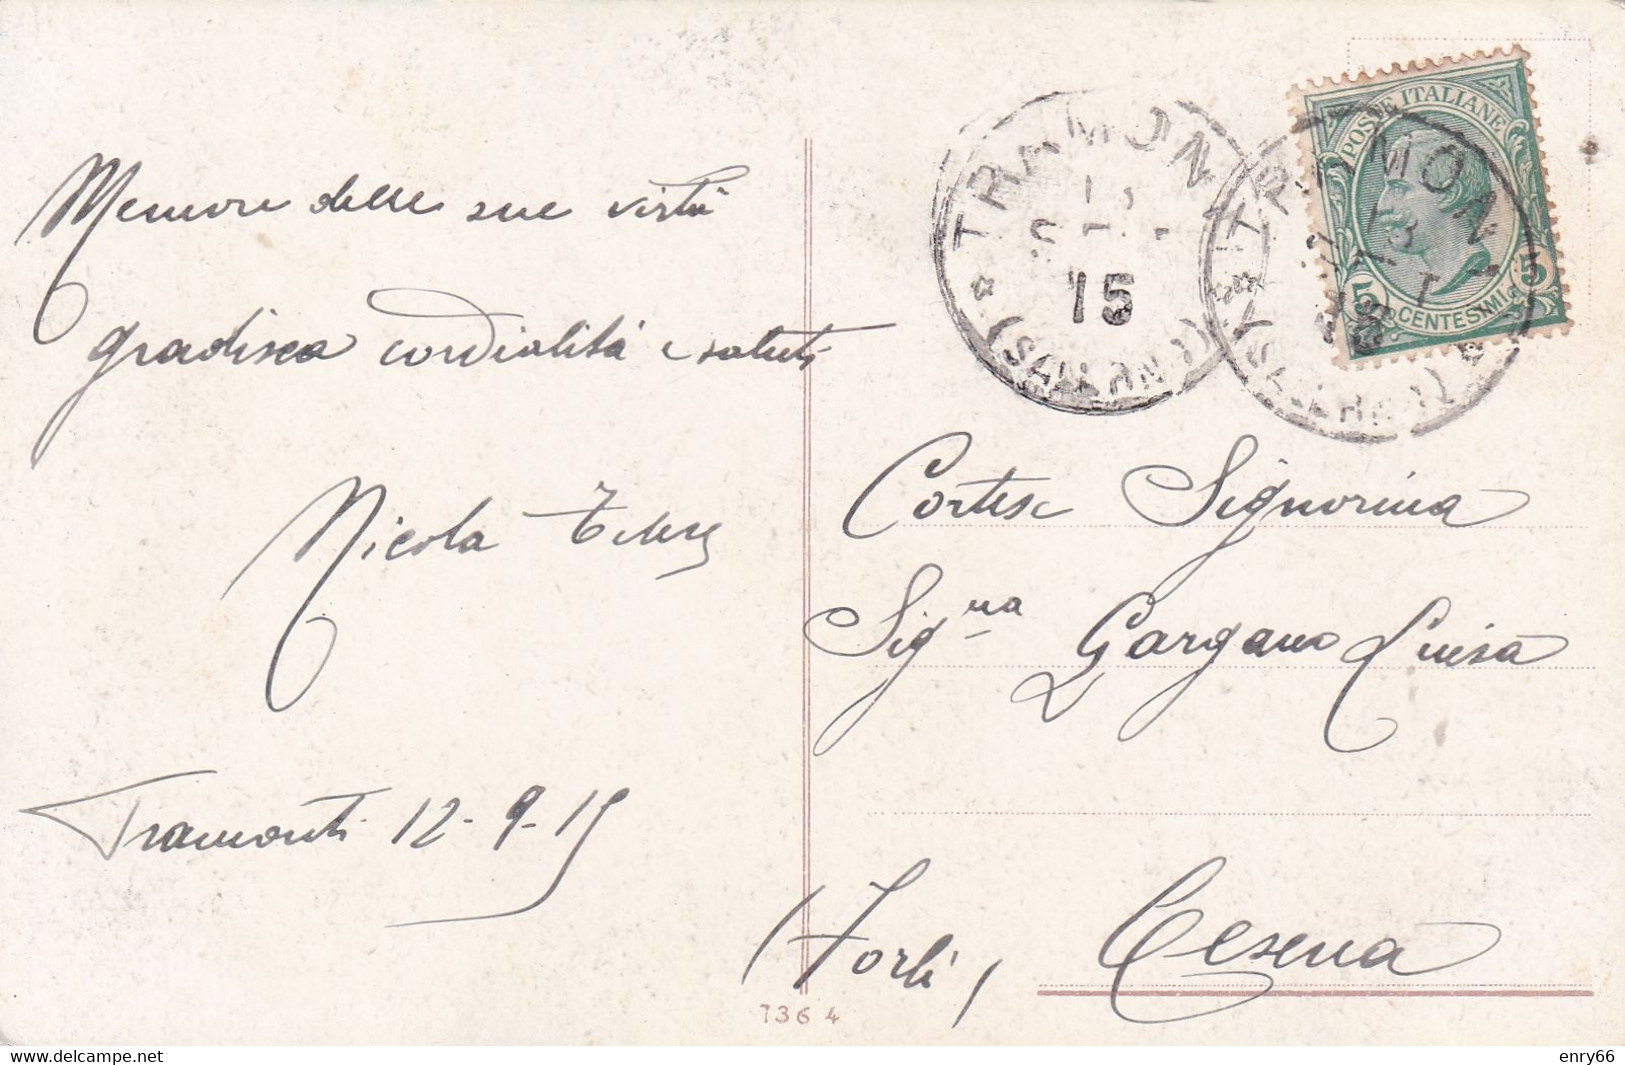 Memore delle sue virtù
gradisca cordialità e saluti
Nicola
Tramonti 12-9-15
TRAMONTI
15
(SALERNO)
TRAMONTI
13
15
(SALERNO)
POSTE ITALIANE
CENTESIMI
5
5
Cortese Signorina
Sig.na Gargano Luisa
(Forlì) Cesena
1364
delcampe.net
enry66